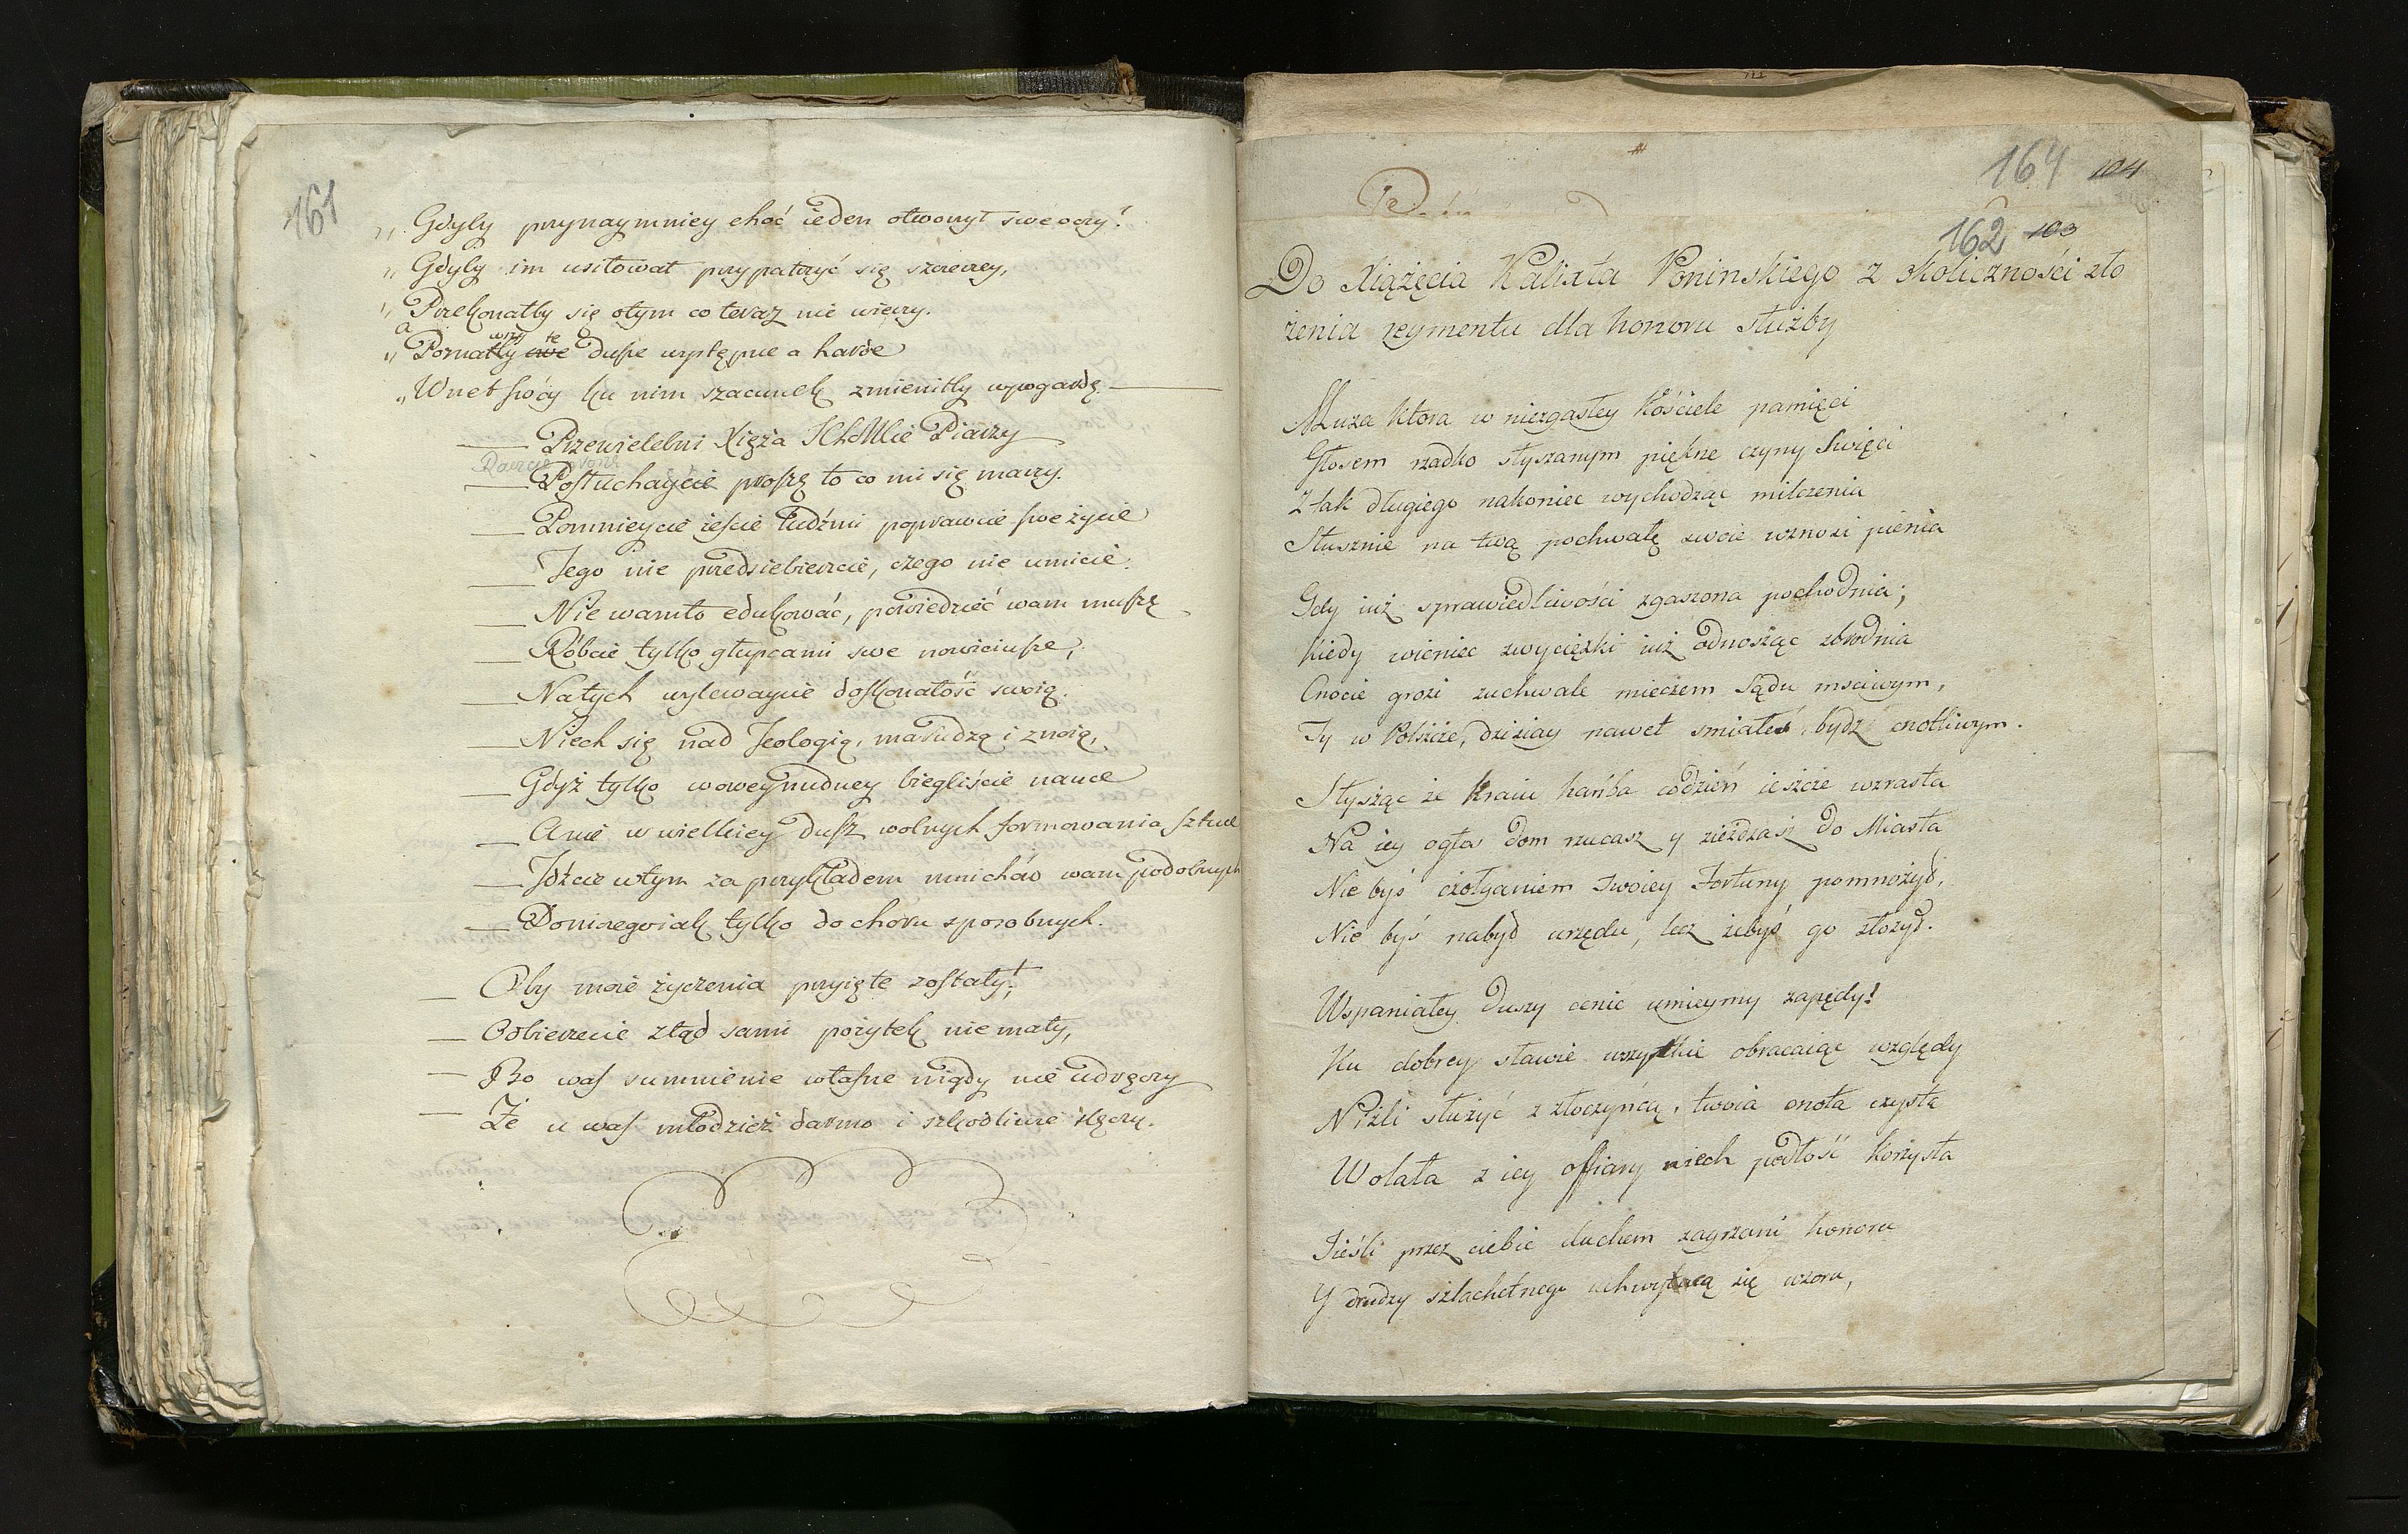 161
„ Gdyby przynaymniey choć ieden otworzył swe oczy!
„ Gdyby im usiłował przypatrzyć się szczerzey,
„ Przekonałby się otym co teraz nie wierzy.
„ Poznałby swe te dusze występne a harde
„ Wnet swóy ku nim szacunek zmieniłby wpogardę.
— Przewielebni Xięża Piarzy
— Posłuchaycie proszę to co mi się marzy.
— Pomnieycie ieście ludźmi poprawcie swe życie
— Tego nie przedsiebierzcie, czego nie umicie.
— Nie wamto edukować, powiedzieć wam muszę
— Róbcie tylko głupcami swe nowiciusze,
— Natych wylewaycie doskonałość swoią.
— Niech się nad Teologią, marudzą i znoią,
— Gdyż tylko wowey nudney biegliście nauce
— A nie w wielkiey dusz wolnych formowania sztuce
— Idźcie wtym za przykładem mnichów wam podobnych
— Doniczegoiak tylko dochoru sposobnych.
— Oby moie życzenia przyięte zostały!
— Odbierzecie ztąd sami pożytek nie mały,
— Bo was sumnienie własne nigdy nie udręczy
— Że u was młodzież darmo i szkodliwie ślęczy.
164 104
162 103
Do Xiążęcia Kalixta Poninskiego z okoliczności zło
żenia reymentu dla honoru służby
Muza ktora w niezgasłey kościele pamięci
Głosem rzadko słyszanym piękne czyny święci
Z tak długiego nakoniec wychodząc milczenia
Słusznie na twą pochwałę swoie wznosi pienia
Gdy iuż sprawiedliwości zgaszona pochodnia;
Kiedy wieniec zwycięzki iuż odnosząc zbrodnia
Cnocie grozi zuchwale mieczem Sądu msciwym,
Ty w Polszcze, dzisiay nawet smiałeś bydź cnotliwym.
Słysząc że kraiu hańba codzień ieszcze wzrasta
Na iey ogłos dom rzucasz y zieżdzasz do Miasta
Nie byś czołganiem swoiey Fortuny pomnożył,
Nie byś nabył urzędu, lecz żebyś go złożył.
Wspaniałey duszy cenić umieymy zapędy!
Ku dobrey sławie wszystkie obracaiąc względy
Niżli służyć z złoczyńcą, twoia cnota czysta
Wolała z iey offiary niech podłość korzysta
Jeśli przez ciebie duchem zagrzani honoru
Y drudzy szlachetnego uchwytaią się wzoru,